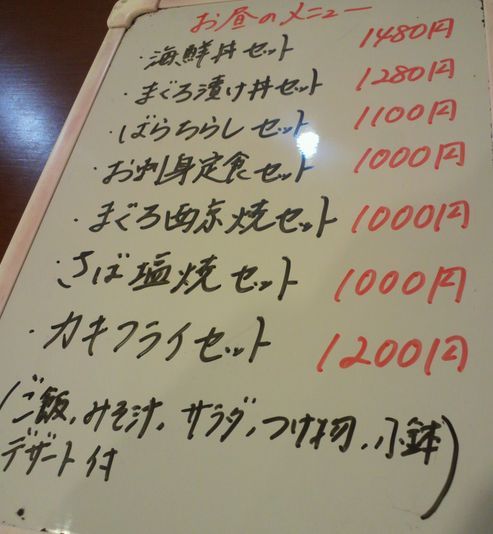 お昼のメニュー
・海鮮丼セット 1480円
・まぐろ漬け丼セット 1280円
・ばらちらしセット 1100円
・お刺身定食セット 1000円
・まぐろ西京焼セット 1000円
・さば塩焼セット 1000円
・カキフライセット 1200円
(ご飯,みそ汁,サラダ,つけ物,小鉢
デザート付)